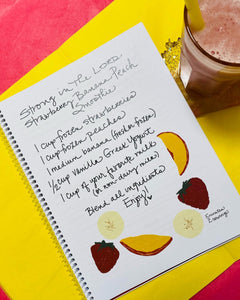 Strong in The LORD
Strawberry Banana Peach
Smoothie
1 cup frozen strawberries
1 cup frozen peaches
1 medium banana (fresh or frozen)
1/2 cup Vanilla Greek Yogurt
1 cup of your favorite milk
(or non-dairy milk)
Blend all ingredients
Enjoy!